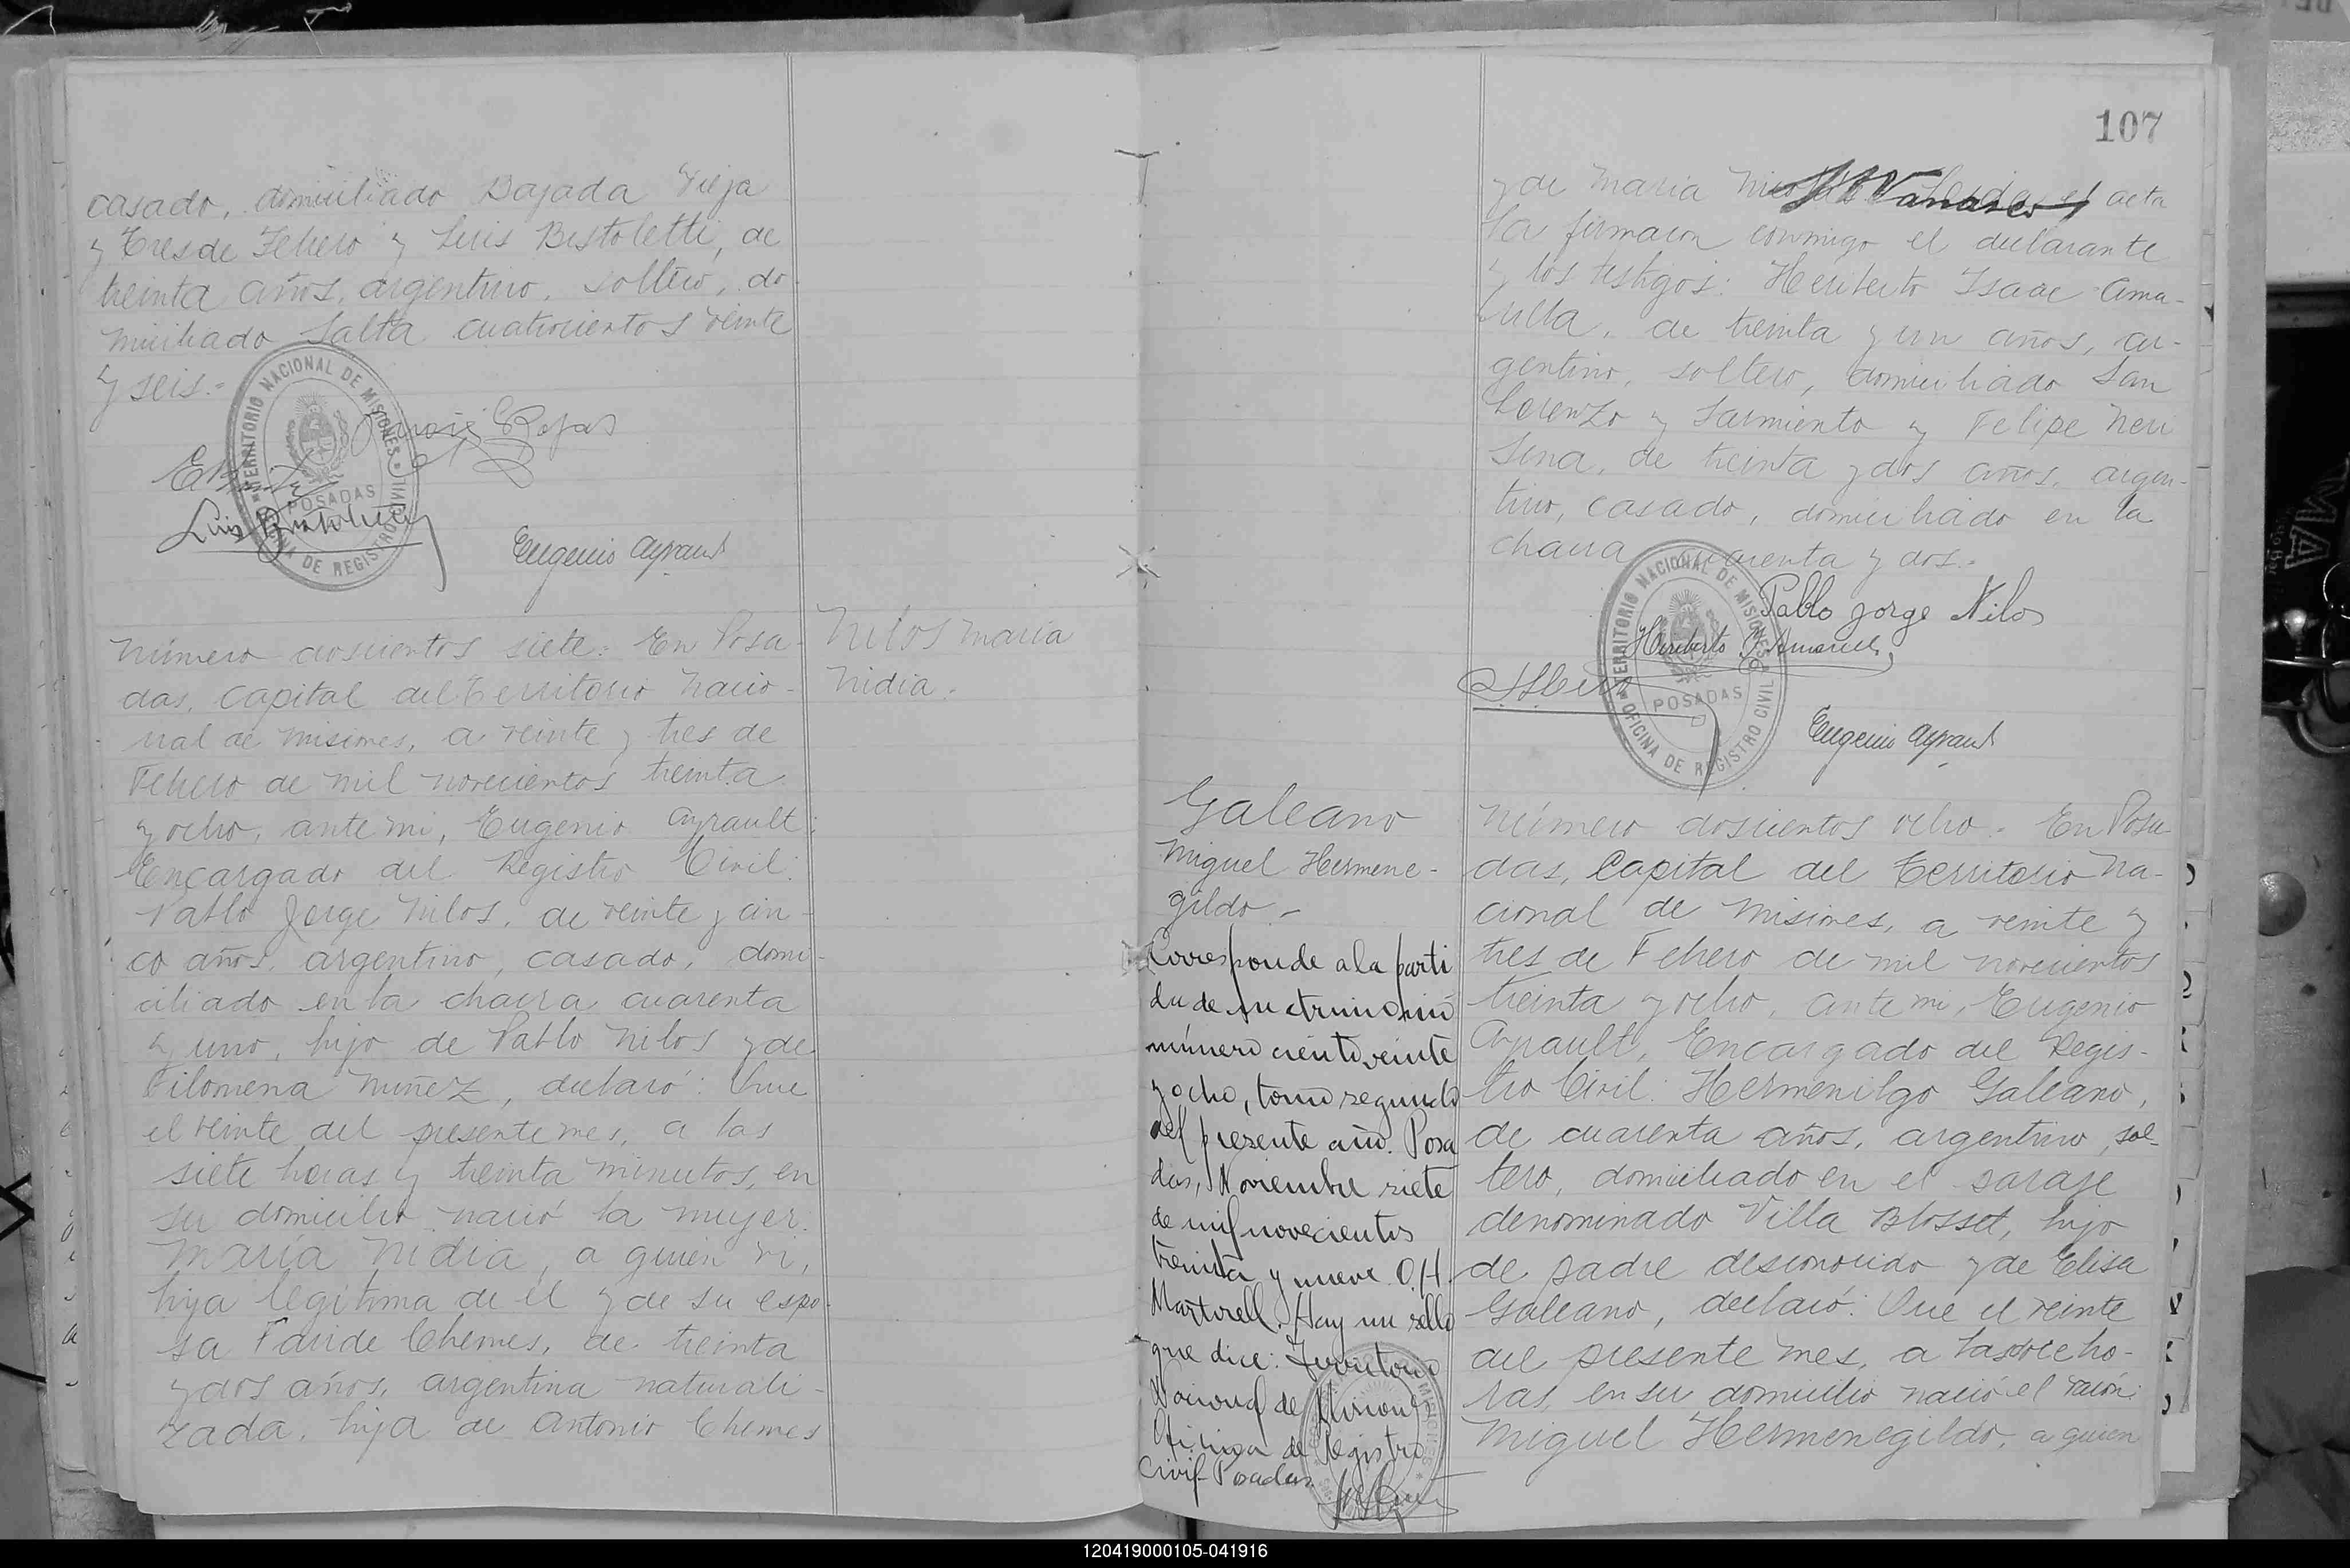 casado, domiciliado Bajada Vieja
y Tres de Febrero y Luis Bistoletti, de
treinta años, argentino, soltero, do
miciliado Salta cuatrocientos veinte
y seis.-
TERRITORIO NACIONAL DE MISIONES
POSADAS
OFICINA DE REGISTRO CIVIL
Rojas
Luis Bistoletti
Eugenio Ayrault
Número doscientos siete: En Posa-
das, Capital del Territorio Nacio-
nal de Misiones, a veinte y tres de
Febrero de mil novecientos treinta
y ocho, ante mi, Eugenio Ayrault;
Encargado del Registro Civil:
Pablo Jorge Nilos, de veinte y cin-
co años, argentino, casado, domi-
ciliado en la chacra cuarenta
y uno, hijo de Pablo Nilos y de
Filomena Nuñez, declaró: Que
el veinte del presente mes, a las
siete horas y treinta minutos, en
su domicilio nació la mujer:
María Nidia, a quien vi,
hija legítima de él y de su espo-
sa Faride Chemes, de treinta
y dos años, argentina naturali-
zada, hija de Antonio Chemes
Nilos María
Nidia.
107
y de María acta
la firmaron conmigo el declarante
y los testigos: Heriberto Isaac Ama-
rilla, de treinta y un años, ar-
gentino, soltero, domiciliado San
Lorenzo y Sarmiento y Felipe Neri
Sena, de treinta y dos años, argen-
tino, casado, domiciliado en la
chacra cuarenta y dos.-
TERRITORIO NACIONAL DE MISIONES
POSADAS
OFICINA DE REGISTRO CIVIL
Pablo Jorge Nilos
Heriberto I. Amarilla
Eugenio Ayrault
Galeano
Miguel Hermene-
gildo.-
Corresponde a la parti
da de matrimonio
número ciento veinte
y ocho, tomo segundo
del presente año. Posa
das, Noviembre siete
de mil novecientos
treinta y nueve. O.H.
Martorell. Hay un sello
que dice: Territorio
Nacional de Misiones
Oficina de Registro
Civil-Posadas.
Número doscientos ocho.- En Posa-
das, Capital del Territorio Na-
cional de Misiones, a veinte y
tres de Febrero de mil novecientos
treinta y ocho, ante mi, Eugenio
Ayrault, Encargado del Regis-
tro Civil: Hermenilgo Galeano,
de cuarenta años, argentino, sol-
tero, domiciliado en el paraje
denominado Villa Blosset, hijo
de padre desconocido y de Elisa
Galeano, declaró: Que el veinte
del presente mes, a las doce ho-
ras, en su domicilio nació el varón:
Miguel Hermenegildo, a quien
120419000105-041916